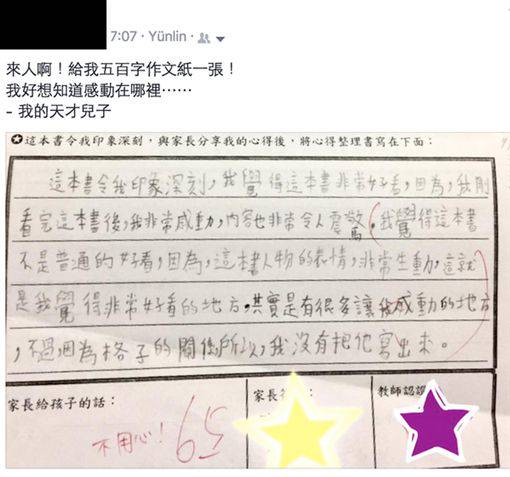 7:07 · Yünlin ·
來人啊！給我五百字作文紙一張！
我好想知道感動在哪裡⋯⋯
- 我的天才兒子
✪這本書令我印象深刻，與家長分享我的心得後，將心得整理書寫在下面：
這本書令我印象深刻，我覺得這本書非常好看，因為，我剛
看完這本書後，我非常感動，內容也非常令人震驚，我覺得這本書
不是普通的好看，因為，這本書人物的表情，非常生動，這就
是我覺得非常好看的地方，其實是有很多讓我感動的地方
，不過因為格子的關係所以，我沒有把他寫出來。
家長給孩子的話：
不用心！65
家長
教師認